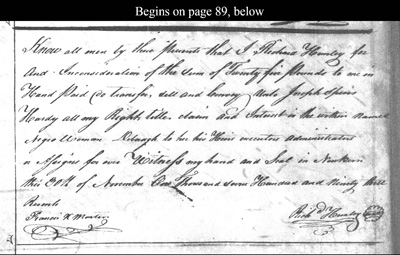 Begins on page 89, below
Know all men by these presents that I Richard Hanley for
And Inconsideration of the Sum of Twenty five Pounds to me in
Hand Paid do transfer, sell and Convey Unto Joseph Speirs
Hardy all my Right, title, claim and Interest in the within Named
Negro Woman to her his Heirs executors administrators
or Assigns for ever Witness my hand and Seal in Newbern
this 30th of November One Thousand seven Hundred and Ninety three
Francis X Martin
Richd Hanley